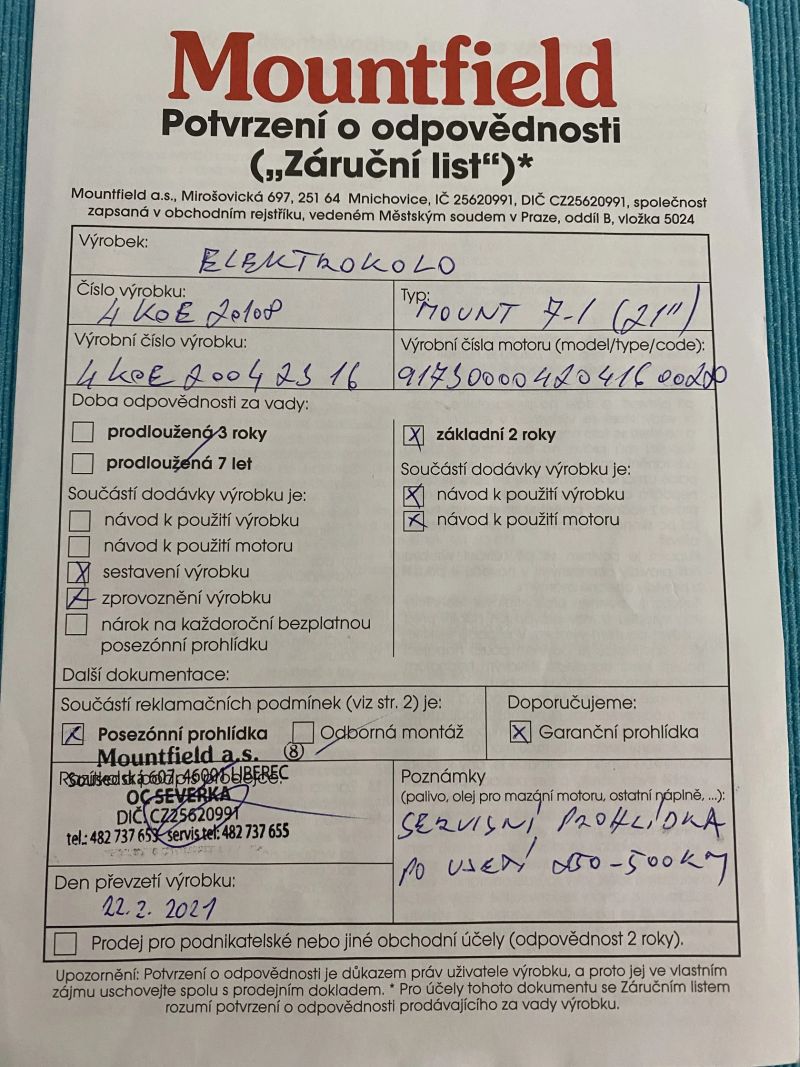 Mountfield
Potvrzení o odpovědnosti
(„Záruční list“)*
Mountfield a.s., Mirošovická 697, 251 64 Mnichovice, IČ 25620991, DIČ CZ25620991, společnost
zapsaná v obchodním rejstříku, vedeném Městským soudem v Praze, oddíl B, vložka 5024
Výrobek:
ELEKTROKOLO
Číslo výrobku:
4KOE 20108
Typ:
MOUNT 7-1 (21")
Výrobní číslo výrobku:
4KOE 2004 23 16
Výrobní čísla motoru (model/type/code):
Doba odpovědnosti za vady:
prodloužená 3 roky
prodloužená 7 let
Součástí dodávky výrobku je:
návod k použití výrobku
návod k použití motoru
X sestavení výrobku
X zprovoznění výrobku
nárok na každoroční bezplatnou
posezónní prohlídku
X základní 2 roky
Součástí dodávky výrobku je:
X návod k použití výrobku
X návod k použití motoru
Další dokumentace:
Součástí reklamačních podmínek (viz str. 2) je:
X Posezónní prohlídka
Odborná montáž
Doporučujeme:
X Garanční prohlídka
Mountfield a.s. 8
Razítko a podpis prodejce:
Sousedská 607, 46001 LIBEREC
OC SEVERKA
DIČ CZ25620991
tel.: 482 737 653 servis tel: 482 737 655
Poznámky
(palivo, olej pro mazání motoru, ostatní náplně, ...):
SERVISNÍ PROHLÍDKA
PO UJETÍ 250-500KM
Den převzetí výrobku:
22.2. 2021
Prodej pro podnikatelské nebo jiné obchodní účely (odpovědnost 2 roky).
Upozornění: Potvrzení o odpovědnosti je důkazem práv uživatele výrobku, a proto jej ve vlastním
zájmu uschovejte spolu s prodejním dokladem. * Pro účely tohoto dokumentu se Záručním listem
rozumí potvrzení o odpovědnosti prodávajícího za vady výrobku.